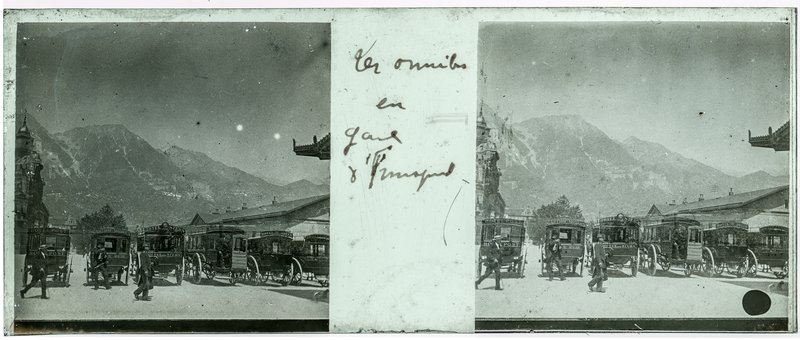 Les omnibus
en
gare
d'Innspruck